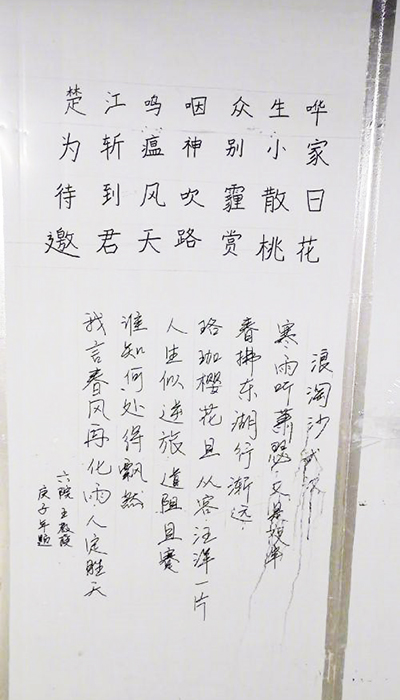 楚江鸣咽众生哗
为斩瘟神别小家
待到风吹霾散日
邀君天路赏桃花
浪淘沙 武汉
寒雨听萧瑟 又是
春拂东湖行渐远
珞珈樱花且从容 汪洋一片
人生似逆旅 道阻且
谁知何处得飘然
我言春风再化雨 人定胜天
六院王
庚子年题